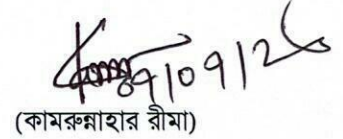 09/09/26
(কামরুন্নাহার রীমা)